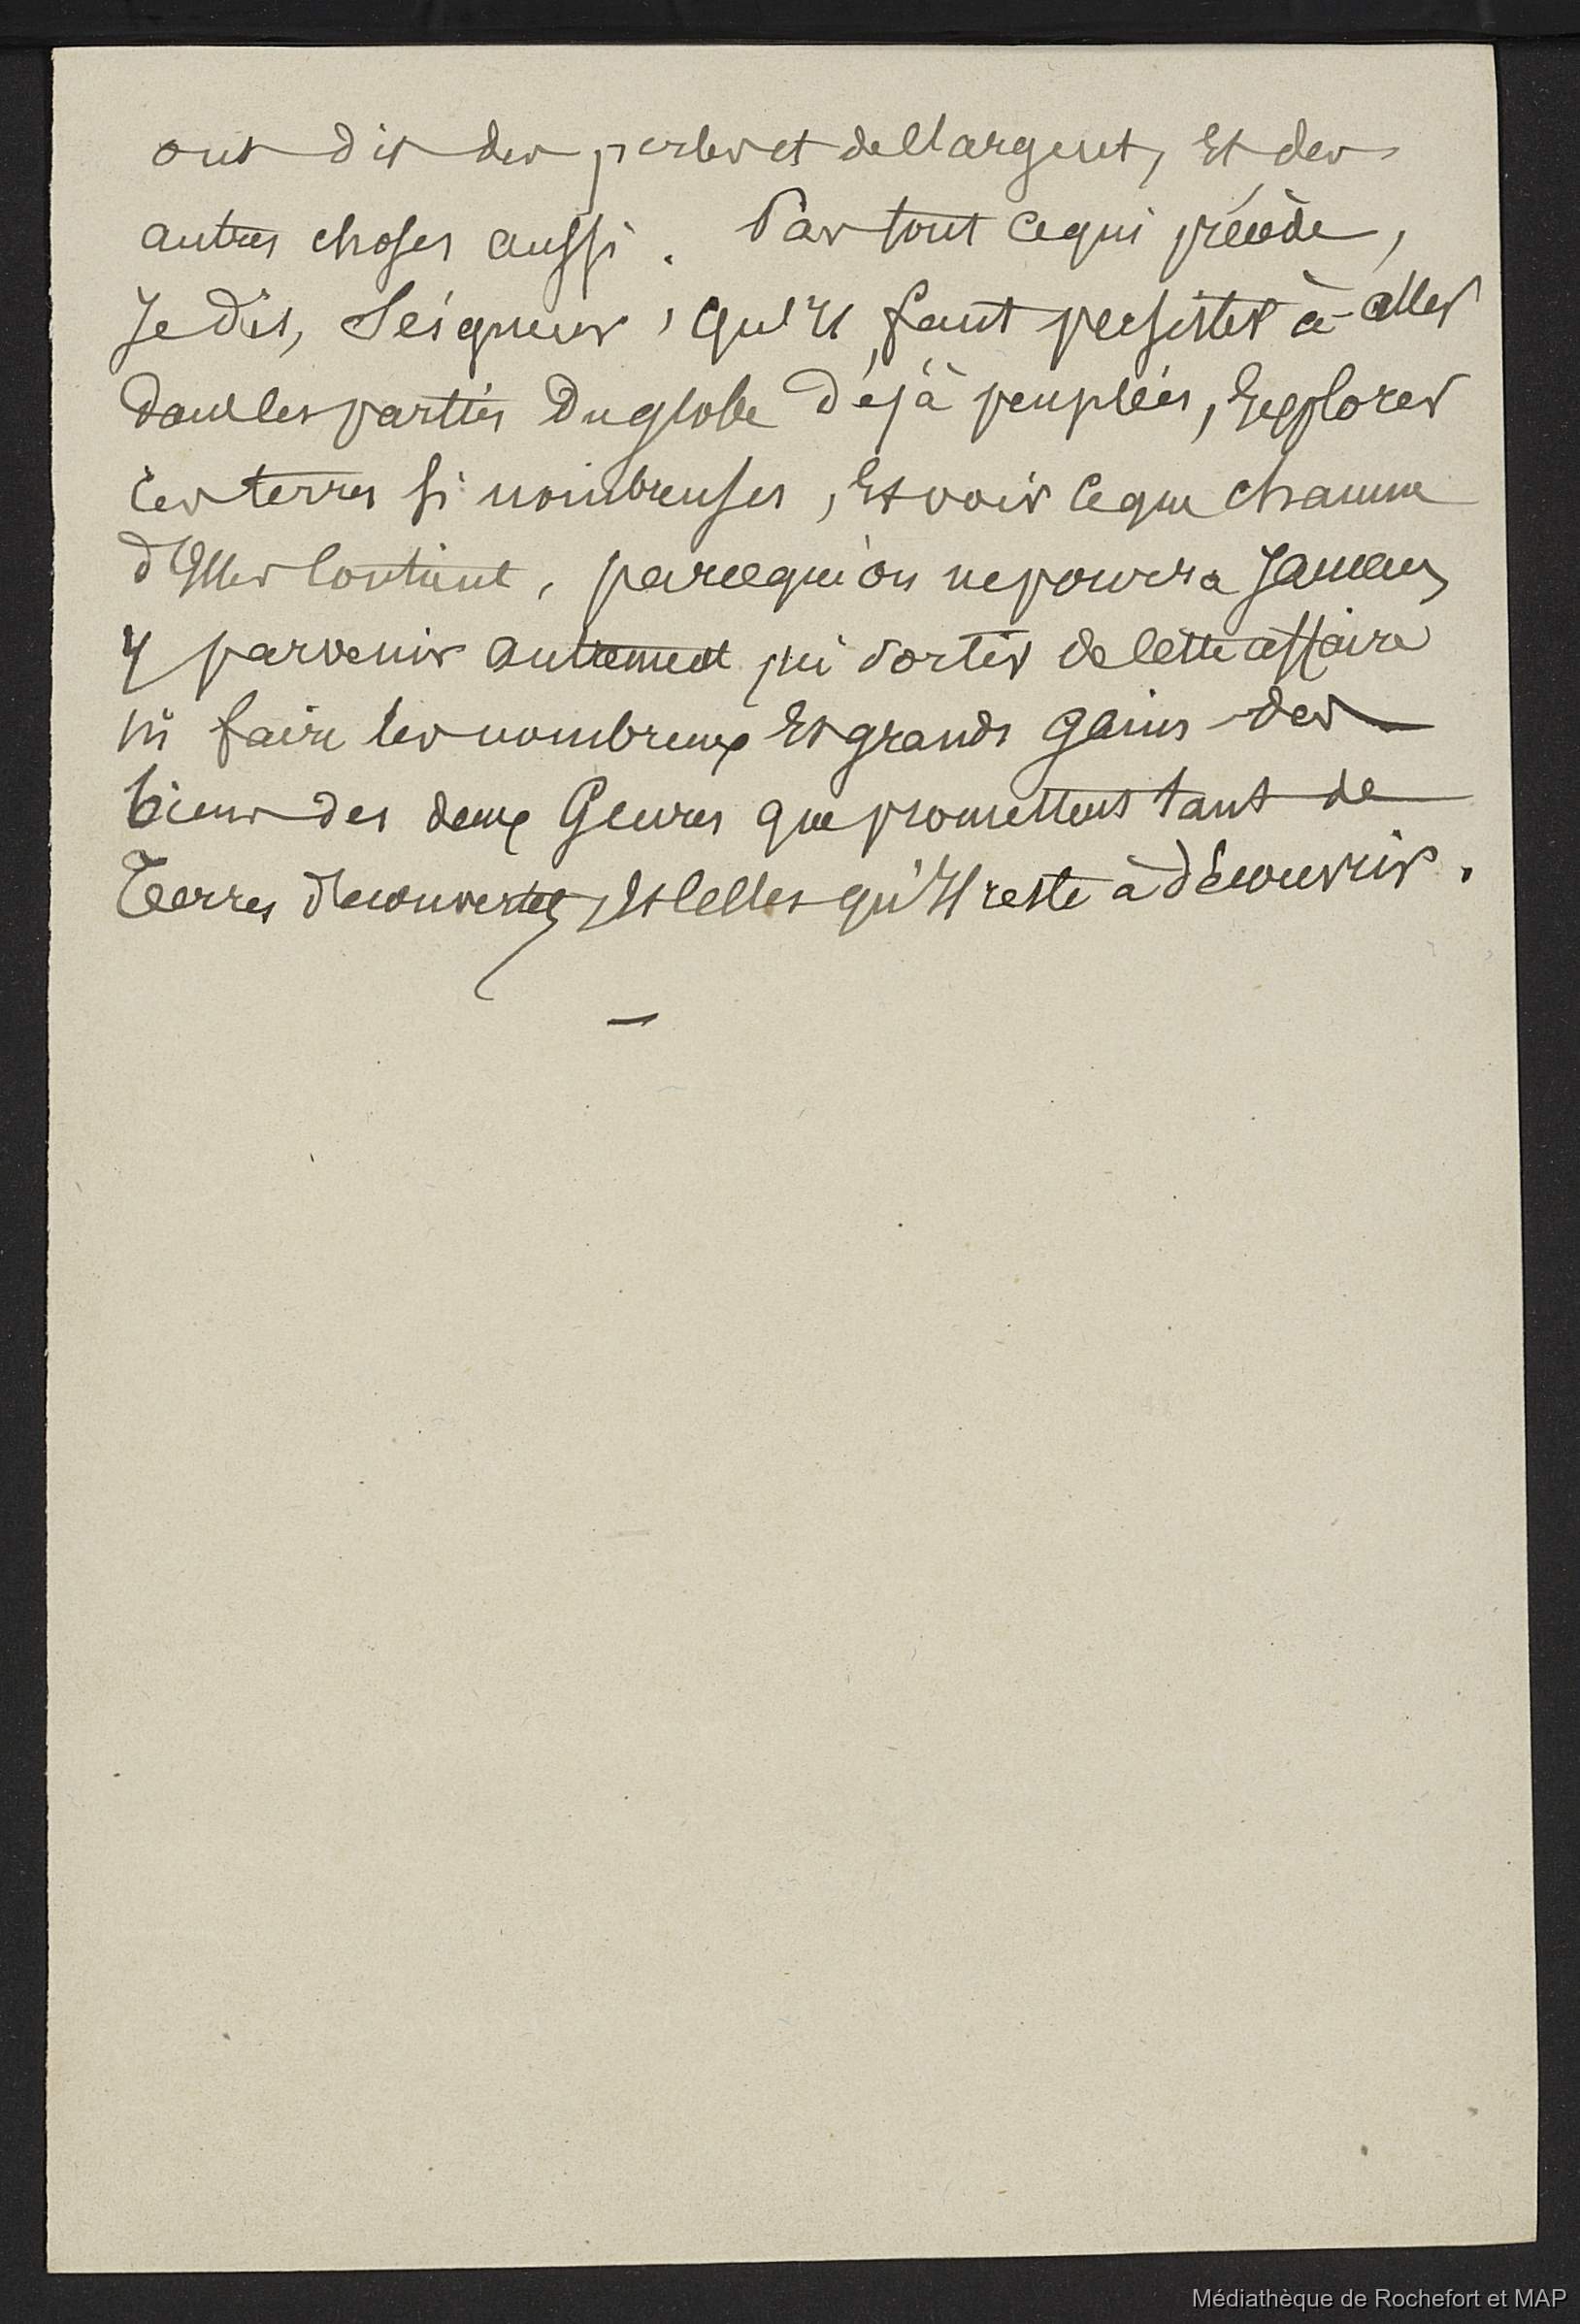 ont dit des perles et de l'argent, Et des
autres choses aussi. Par tout ce qui précède,
Je dis, Seigneur, qu'Il faut persister à aller
dans les parties du globe déjà peuplées, Explorer
ces terres si nombreuses, Et voir ce que chacune
d'Elles contient, parce qu'on ne pourra Jamais
y parvenir autrement ni sortir de cette affaire
ni faire les nombreux Et grands gains des
biens des deux Genres que promettent tant de
Terres découvertes, Et celles qu'Il reste à découvrir.
—
Médiathèque de Rochefort et MAP